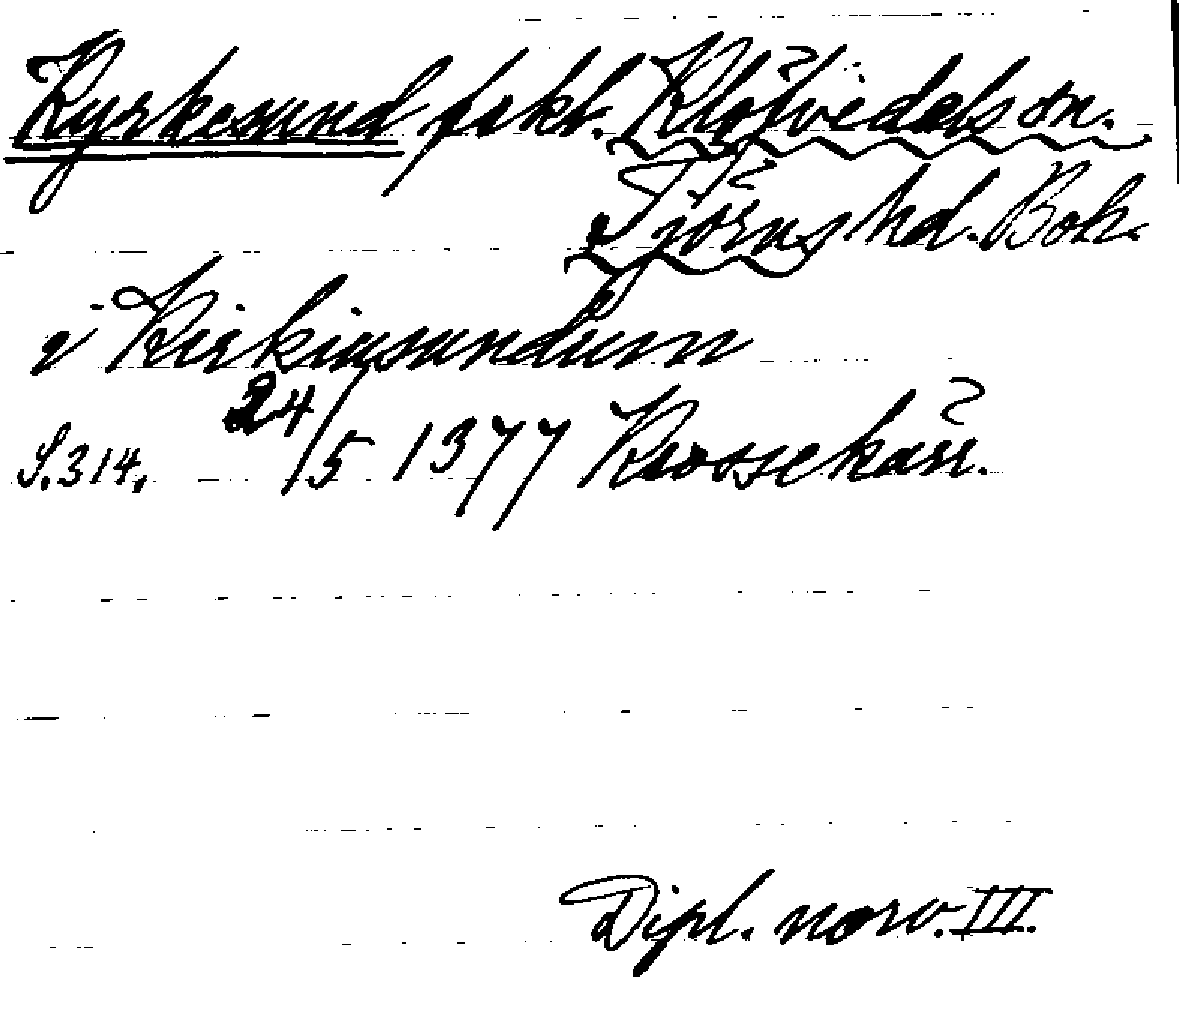 Kyrkesund fskl. Klövedals sn.
Tjörns hd. Boh.
i Kirkiusundum
S. 314. 24/5 1377 Krossekärr.
Dipl. norv. III.